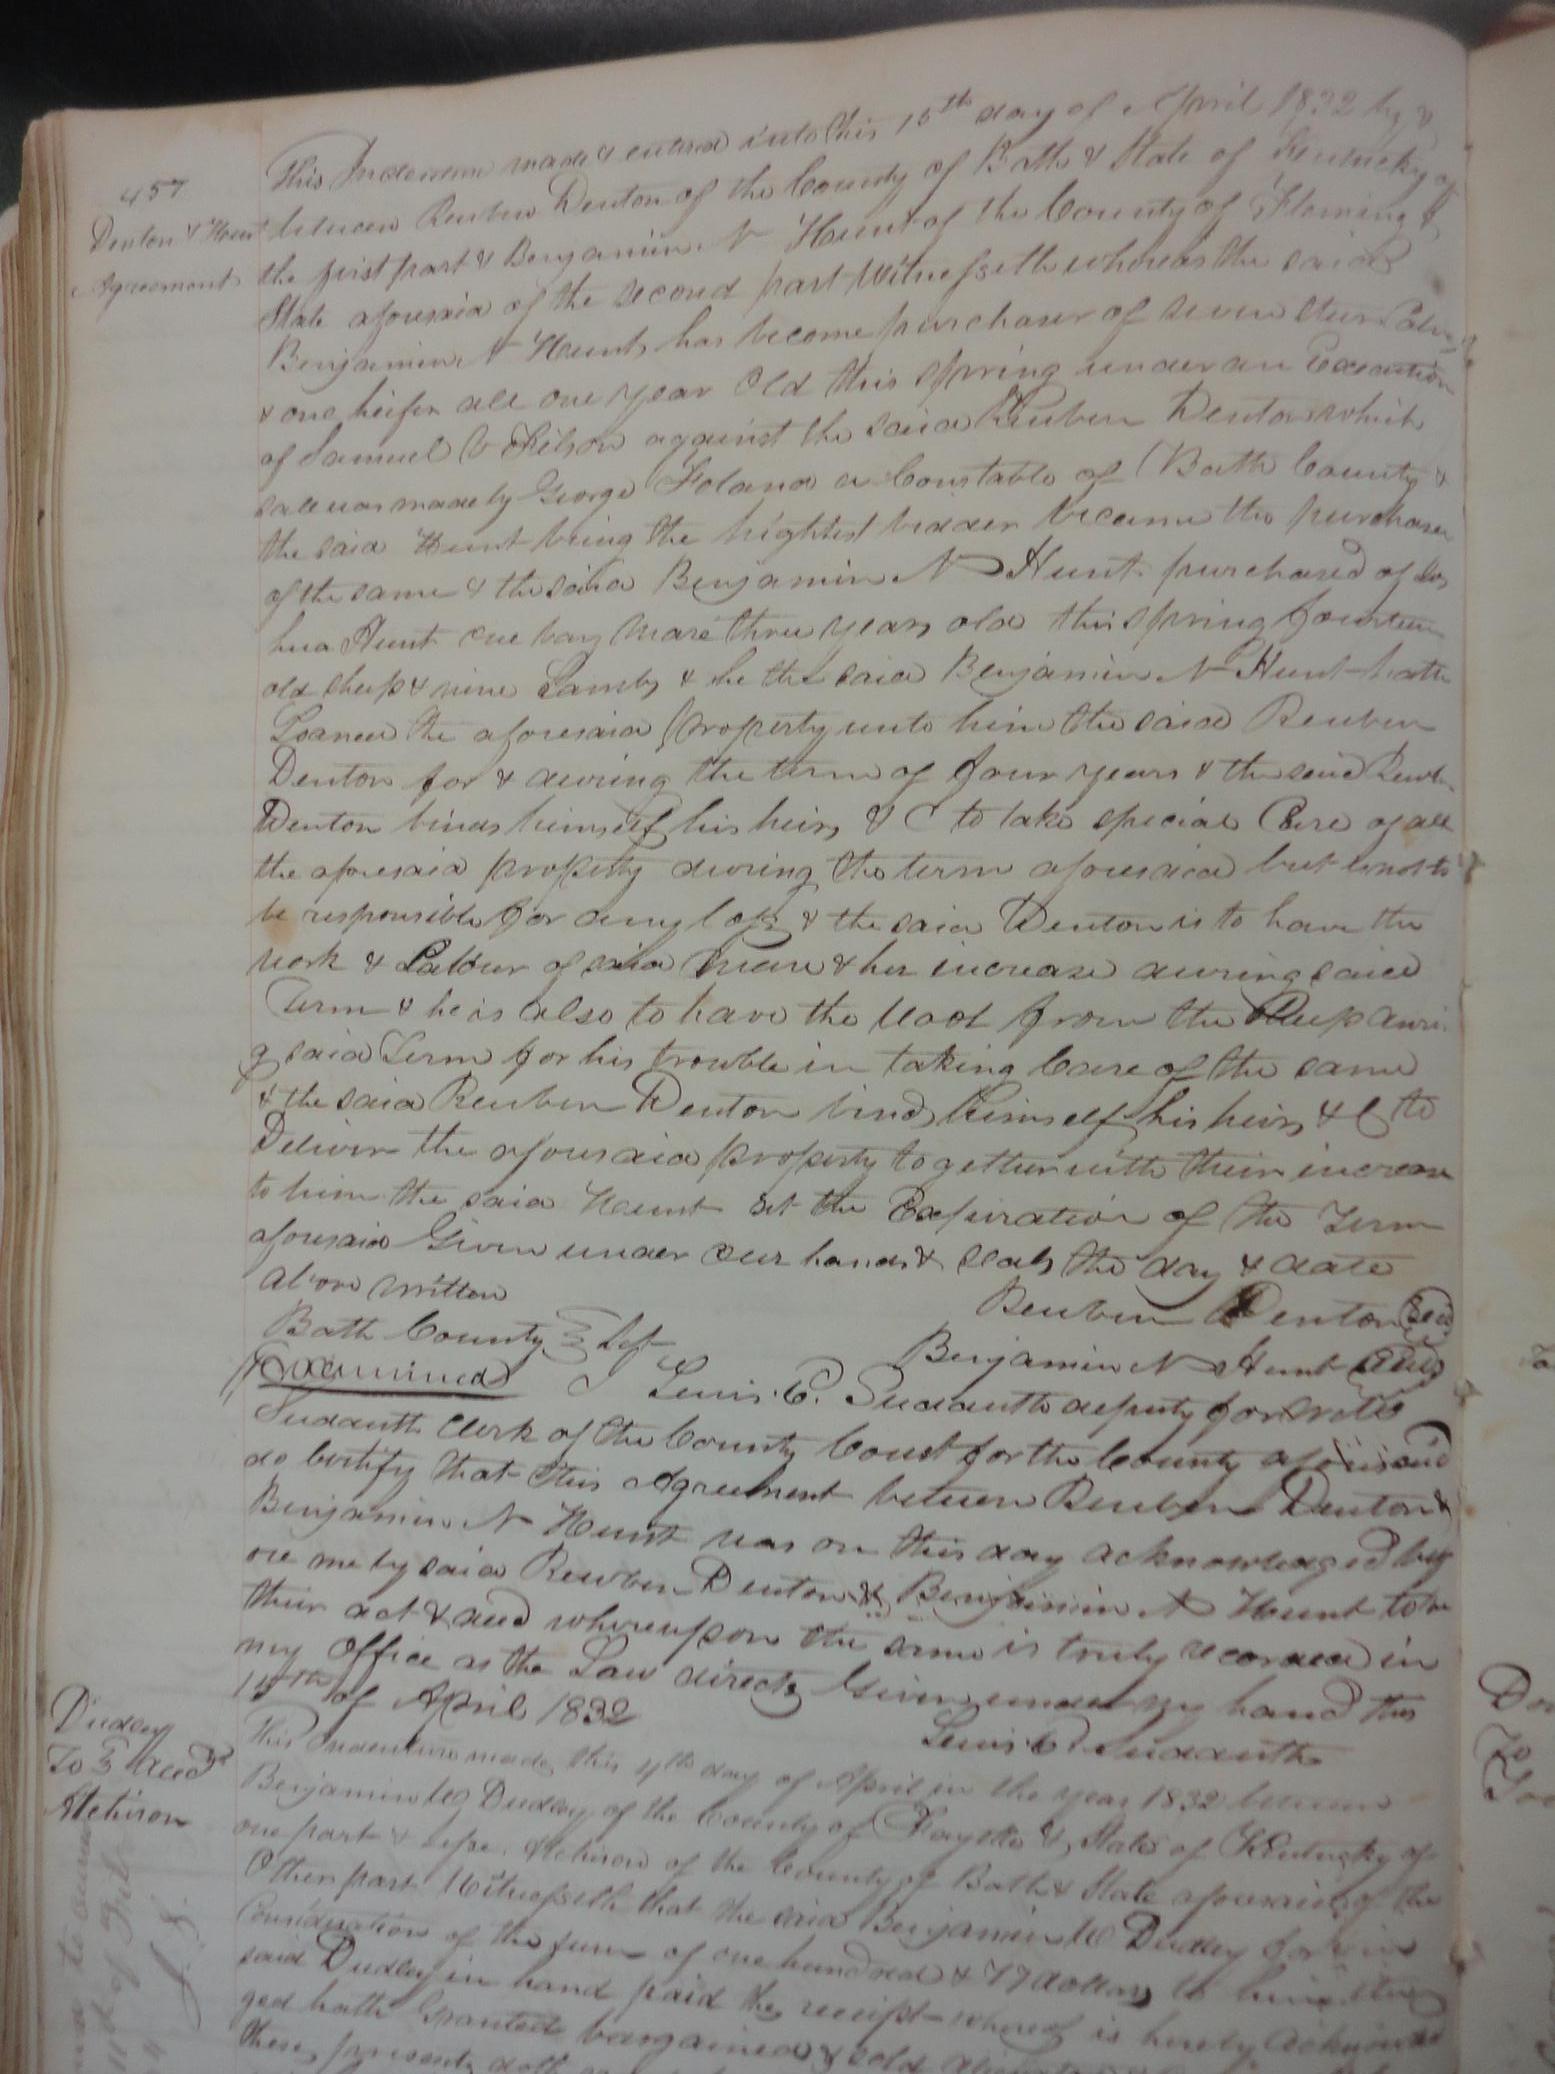 457
Denton & Hunt
Agreement
This Indenture made & entered into this 15th day of April 1832 by &
between Reuben Denton of the County of Bath & State of Kentucky of
the first part & Benjamin N Hunt of the County of Fleming &
State aforesaid of the second part Witnesseth whereas the said
Benjamin N Hunt has become purchaser of seven steer Calves
& one heifer all one year Old this spring under an Execution
of Samuel against the said Reuben Denton which
sale was made by George Foland a Constable of Bath County &
the said Hunt being the hightest bidder became the purchaser
of the same & the said Benjamin N Hunt purchased of Jos
hua Hunt one bay Mare three years old this spring fourteen
old sheep & nine Lambs & he the said Benjamin N Hunt hath
Loaned the aforesaid property unto him the said Reuben
Denton for & during the term of four years & the said Reuben
Denton binds himself his heirs &C to take special Care of all
the aforesaid property during the term aforesaid but is not to
be responsible for any loss & the said Denton is to have the
work & Labour of said Mare & her increase during said
Term & he is also to have the wool from the Sheep duri
g said Term for his trouble in taking Care of the same
& the said Reuben Denton binds himself his heirs &C to
Deliver the aforesaid property together with their increase
to him the said Hunt at the Expiration of the Term
aforesaid Given under our hands & seals the day & date
above written
Reuben Denton Seal
Bath County Sct
Benjamin N Hunt Seal
Examined
I Lewis C. Sudduth deputy for
Sudduth Clerk of the County Court for the County aforesaid
do Certify that this Agreement between Reuben Denton &
Benjamin N Hunt was on this day acknowledged bef
ore me by said Reuben Denton & Benjamin N Hunt to be
their act & deed whereupon the same is truly recorded in
my Office as the Law directs Given under my hand this
15th of April 1832
Lewis C Sudduth
Dudley
To Deed
Atchison
This Indenture made this 4th day of April in the year 1832 between
Benjamin W Dudley of the County of Fayette & State of Kentucky of
one part & Atchison of the County of Bath & State aforesaid of the
Other part Witnesseth that the said Benjamin W Dudley for & in
Consideration of the sum of one hundred & 77 dollars to him the
said Dudley in hand paid the receipt whereof is hereby acknowled
ged hath Granted bargained & sold
these presents doth